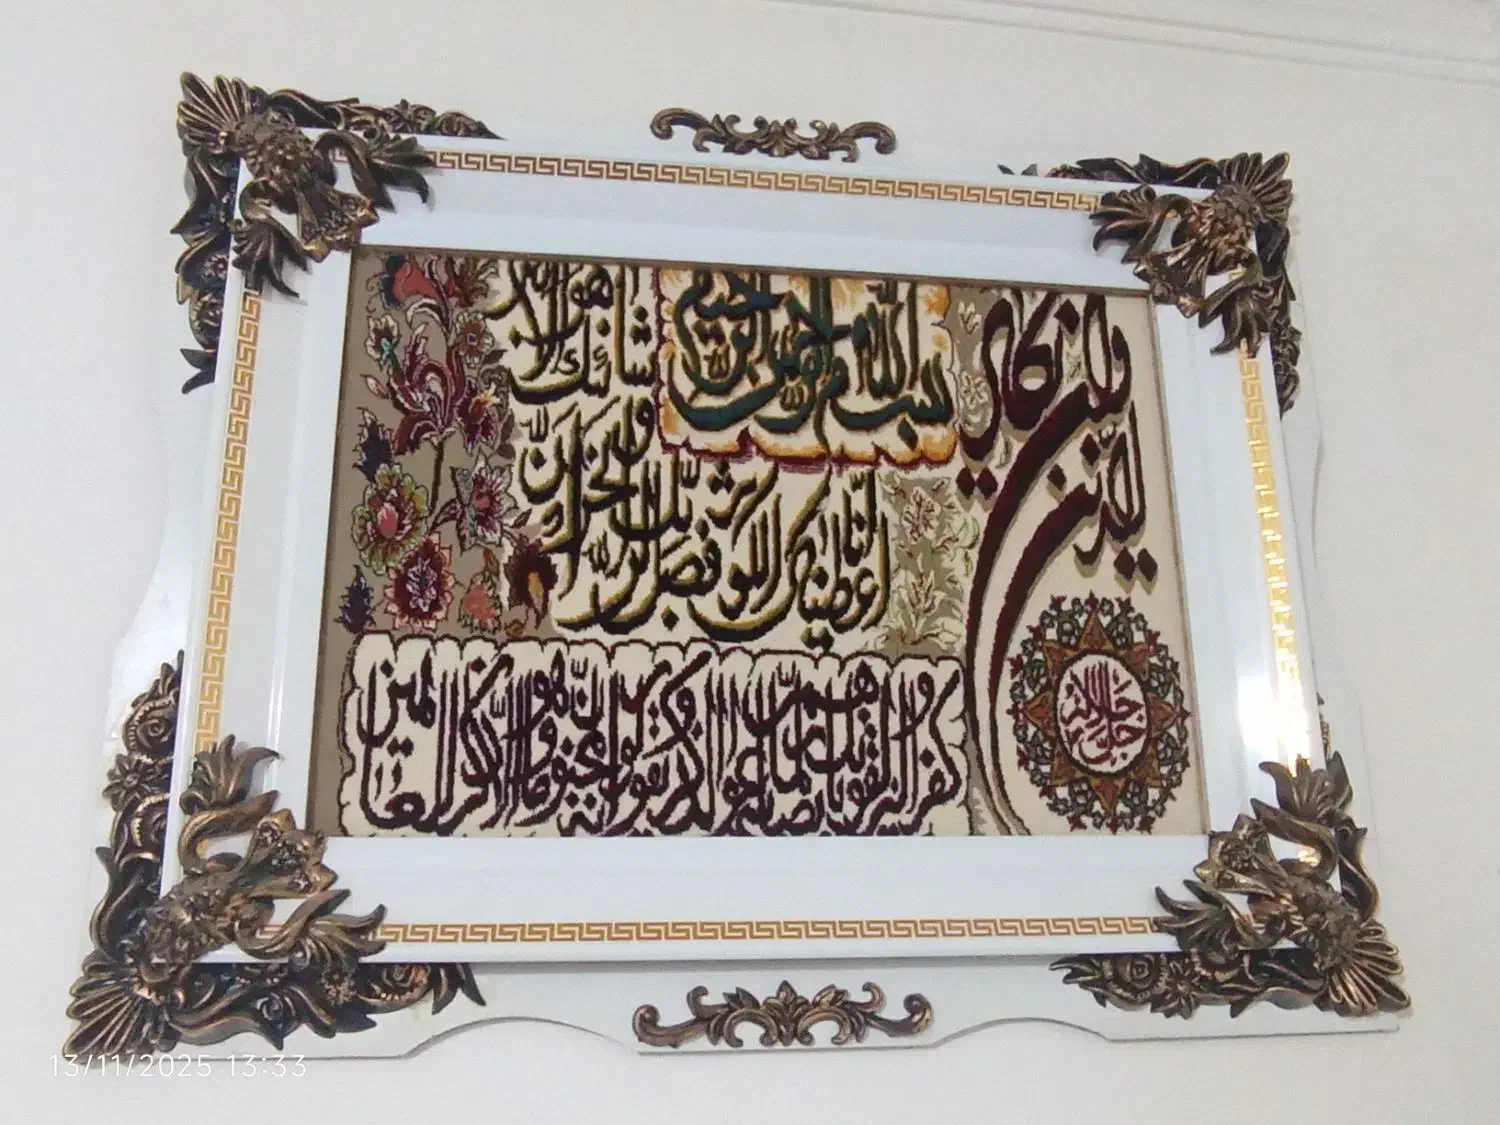 وإن يكاد الذين
بسم الله الرحمن الرحيم
إنا أعطيناك الكوثر فصل لربك وانحر إن
شانئك هو الأبتر
كفروا ليزلقونك بأبصارهم لما سمعوا الذكر ويقولون إنه لمجنون وما هو إلا ذكر للعالمين
جل جلاله
13/11/2025 13:33